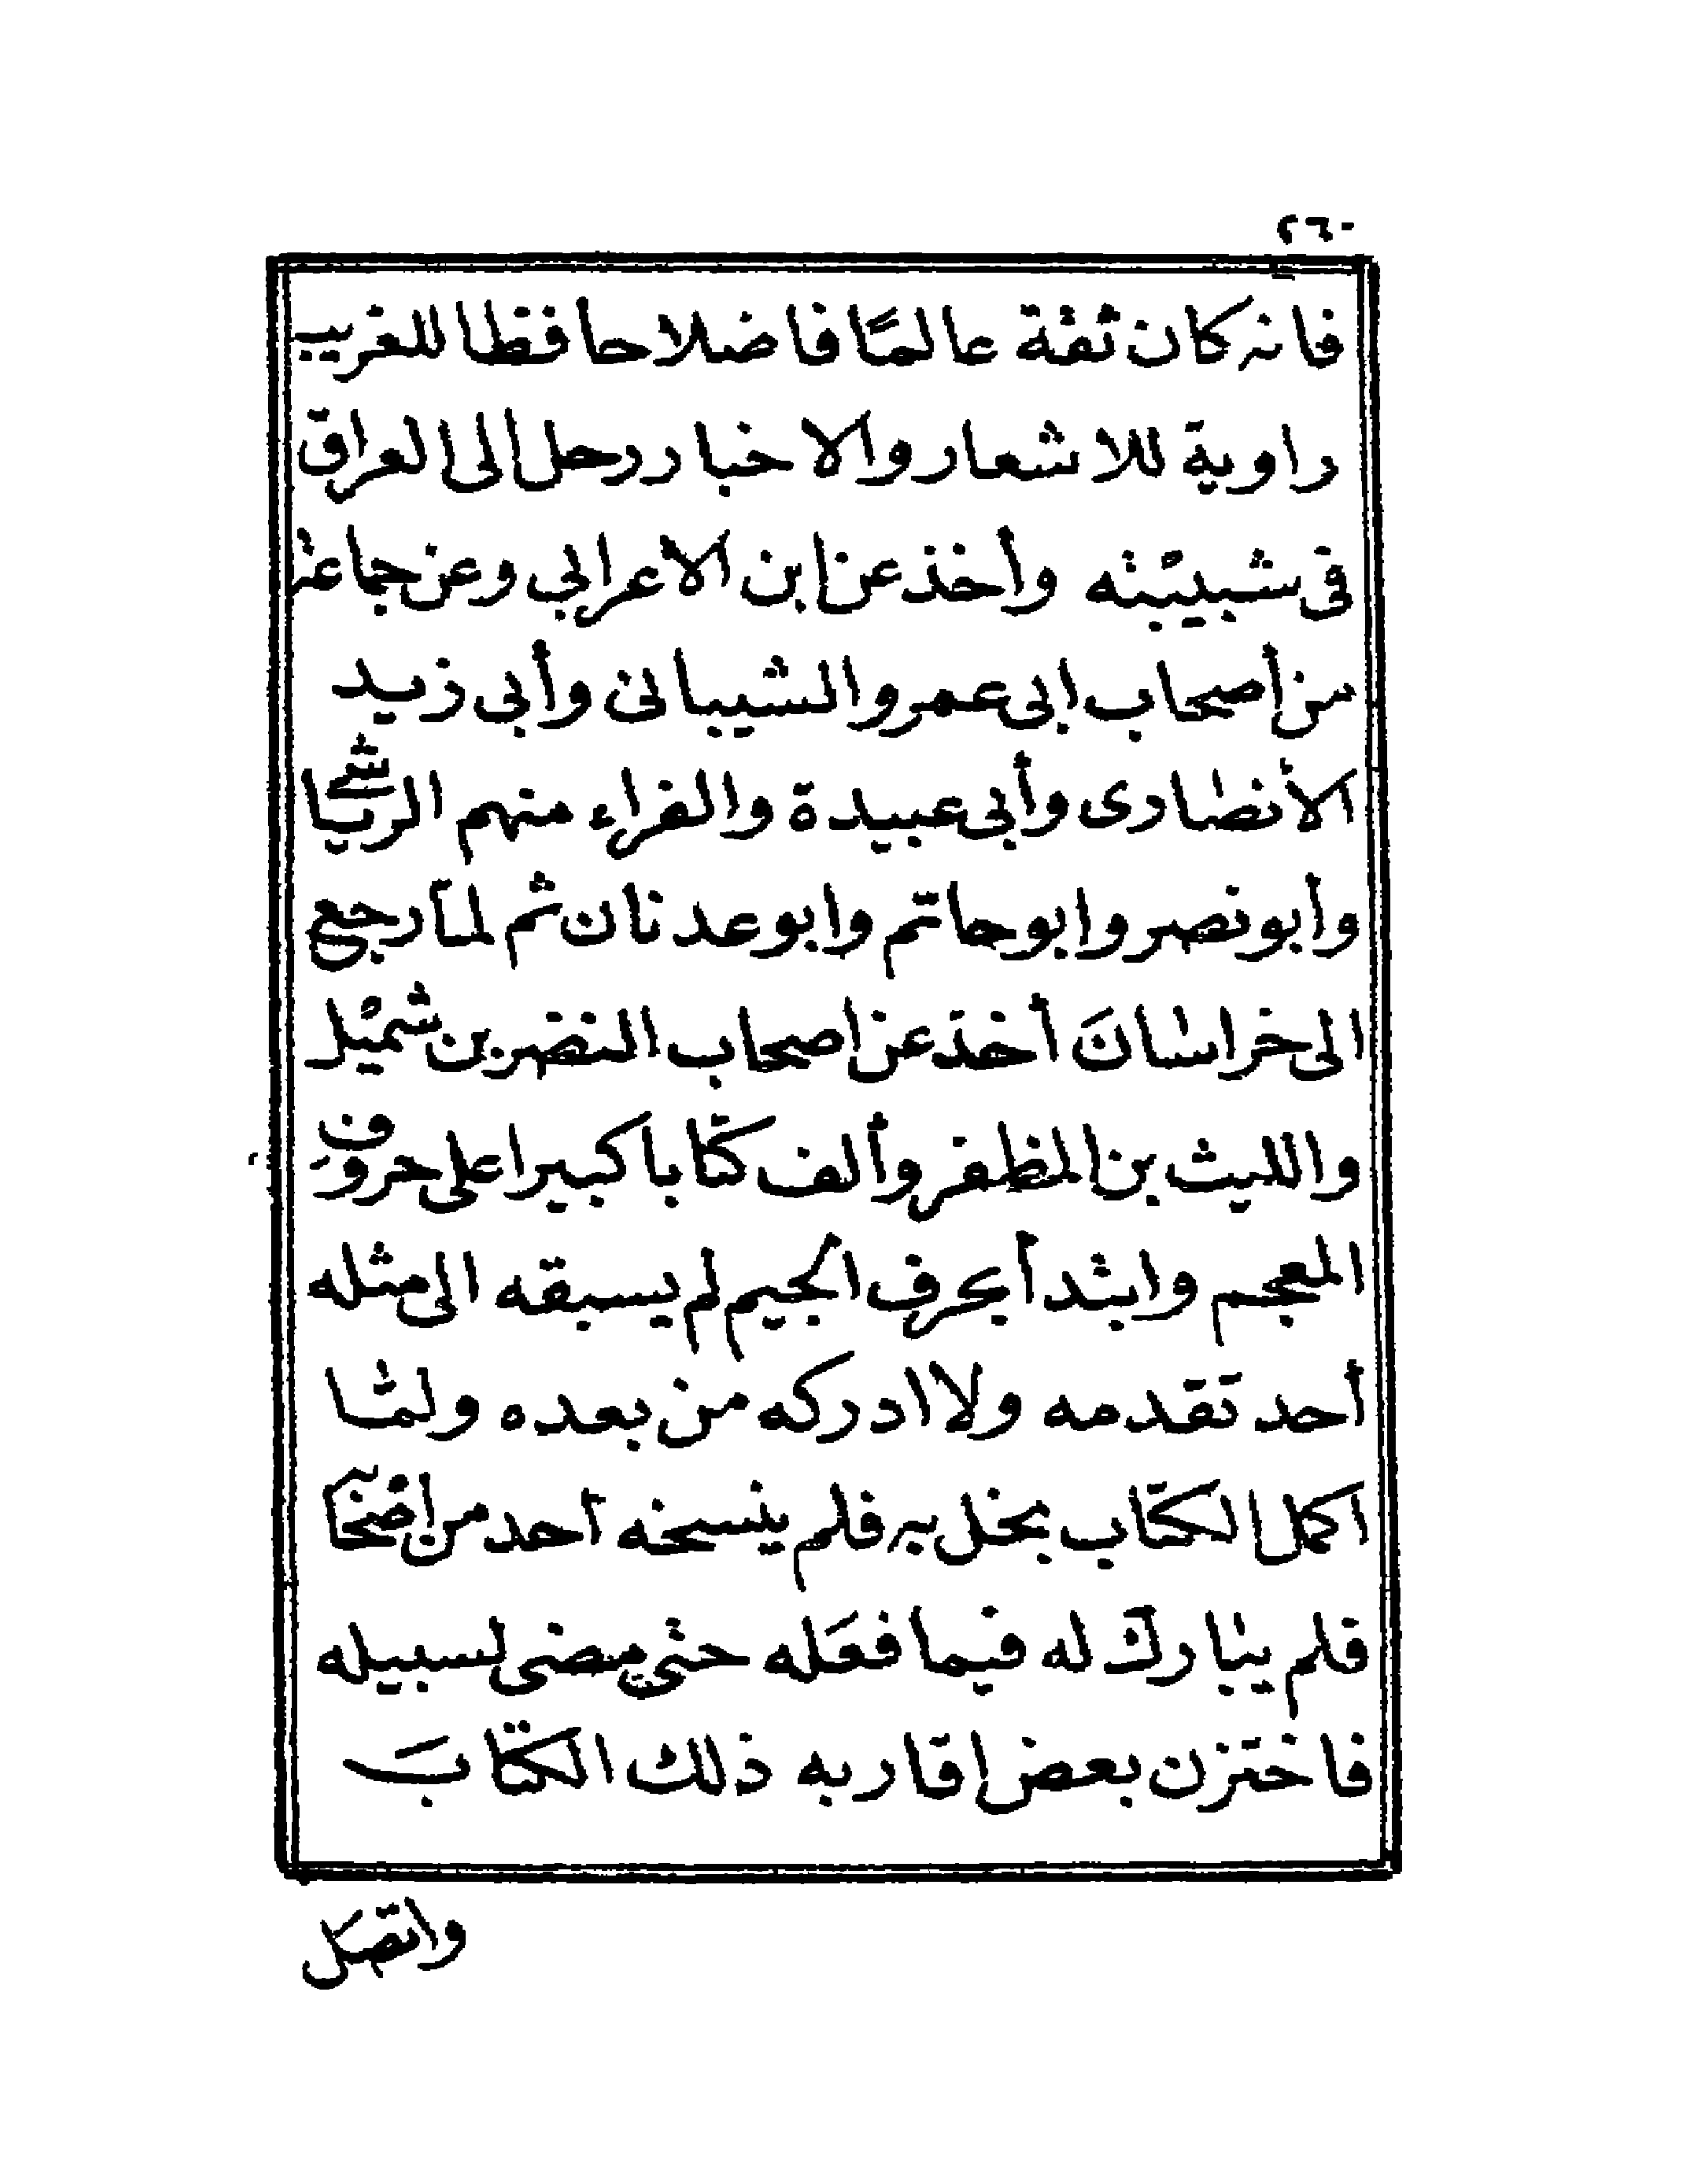 ٢٦٠
فانه كان ثقة عالمًا فاضلا حافظا للغريب
راوية للاشعار والاخبار رحل الى العراق
فى شبيبته وأخذ عن ابن الاعرابي وعن جماعة
من أصحاب ابى عمرو الشيبانى وأبى زيد
الأنصارى وأبى عبيدة والفراء منهم الرياشى
وأبو نصر وابو حاتم وابو عدنان ثم لما رجع
الى خراسانَ أخذ عن اصحاب النضر بن شميل
والليث بن المظفر وألف كتابا كبيرا على حروف
المعجم وابتدأ بحرف الجيم لم يسبقه الى مثله
أحد تقدمه ولا ادركه من بعده ولما
اكمل الكتاب بخل به فلم ينسخه احد من اصحابه
فلم يبارك له فيما فعَله حتى مضى لسبيله
فاختزن بعض اقاربه ذلك الكتابَ
واتصل